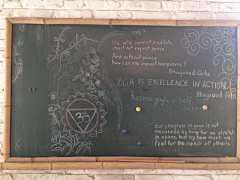 He who cannot meditate
must not expect peace
And without peace
how can one expect happiness?
Bhagavad Gita
YOGA IS EXCELLENCE IN ACTION
Bhagavad Gita
Karma yoga = Self
ॐ
Our progress in yoga is not
measured by how far we stretch
in asana but by how much we
feel for the needs of others